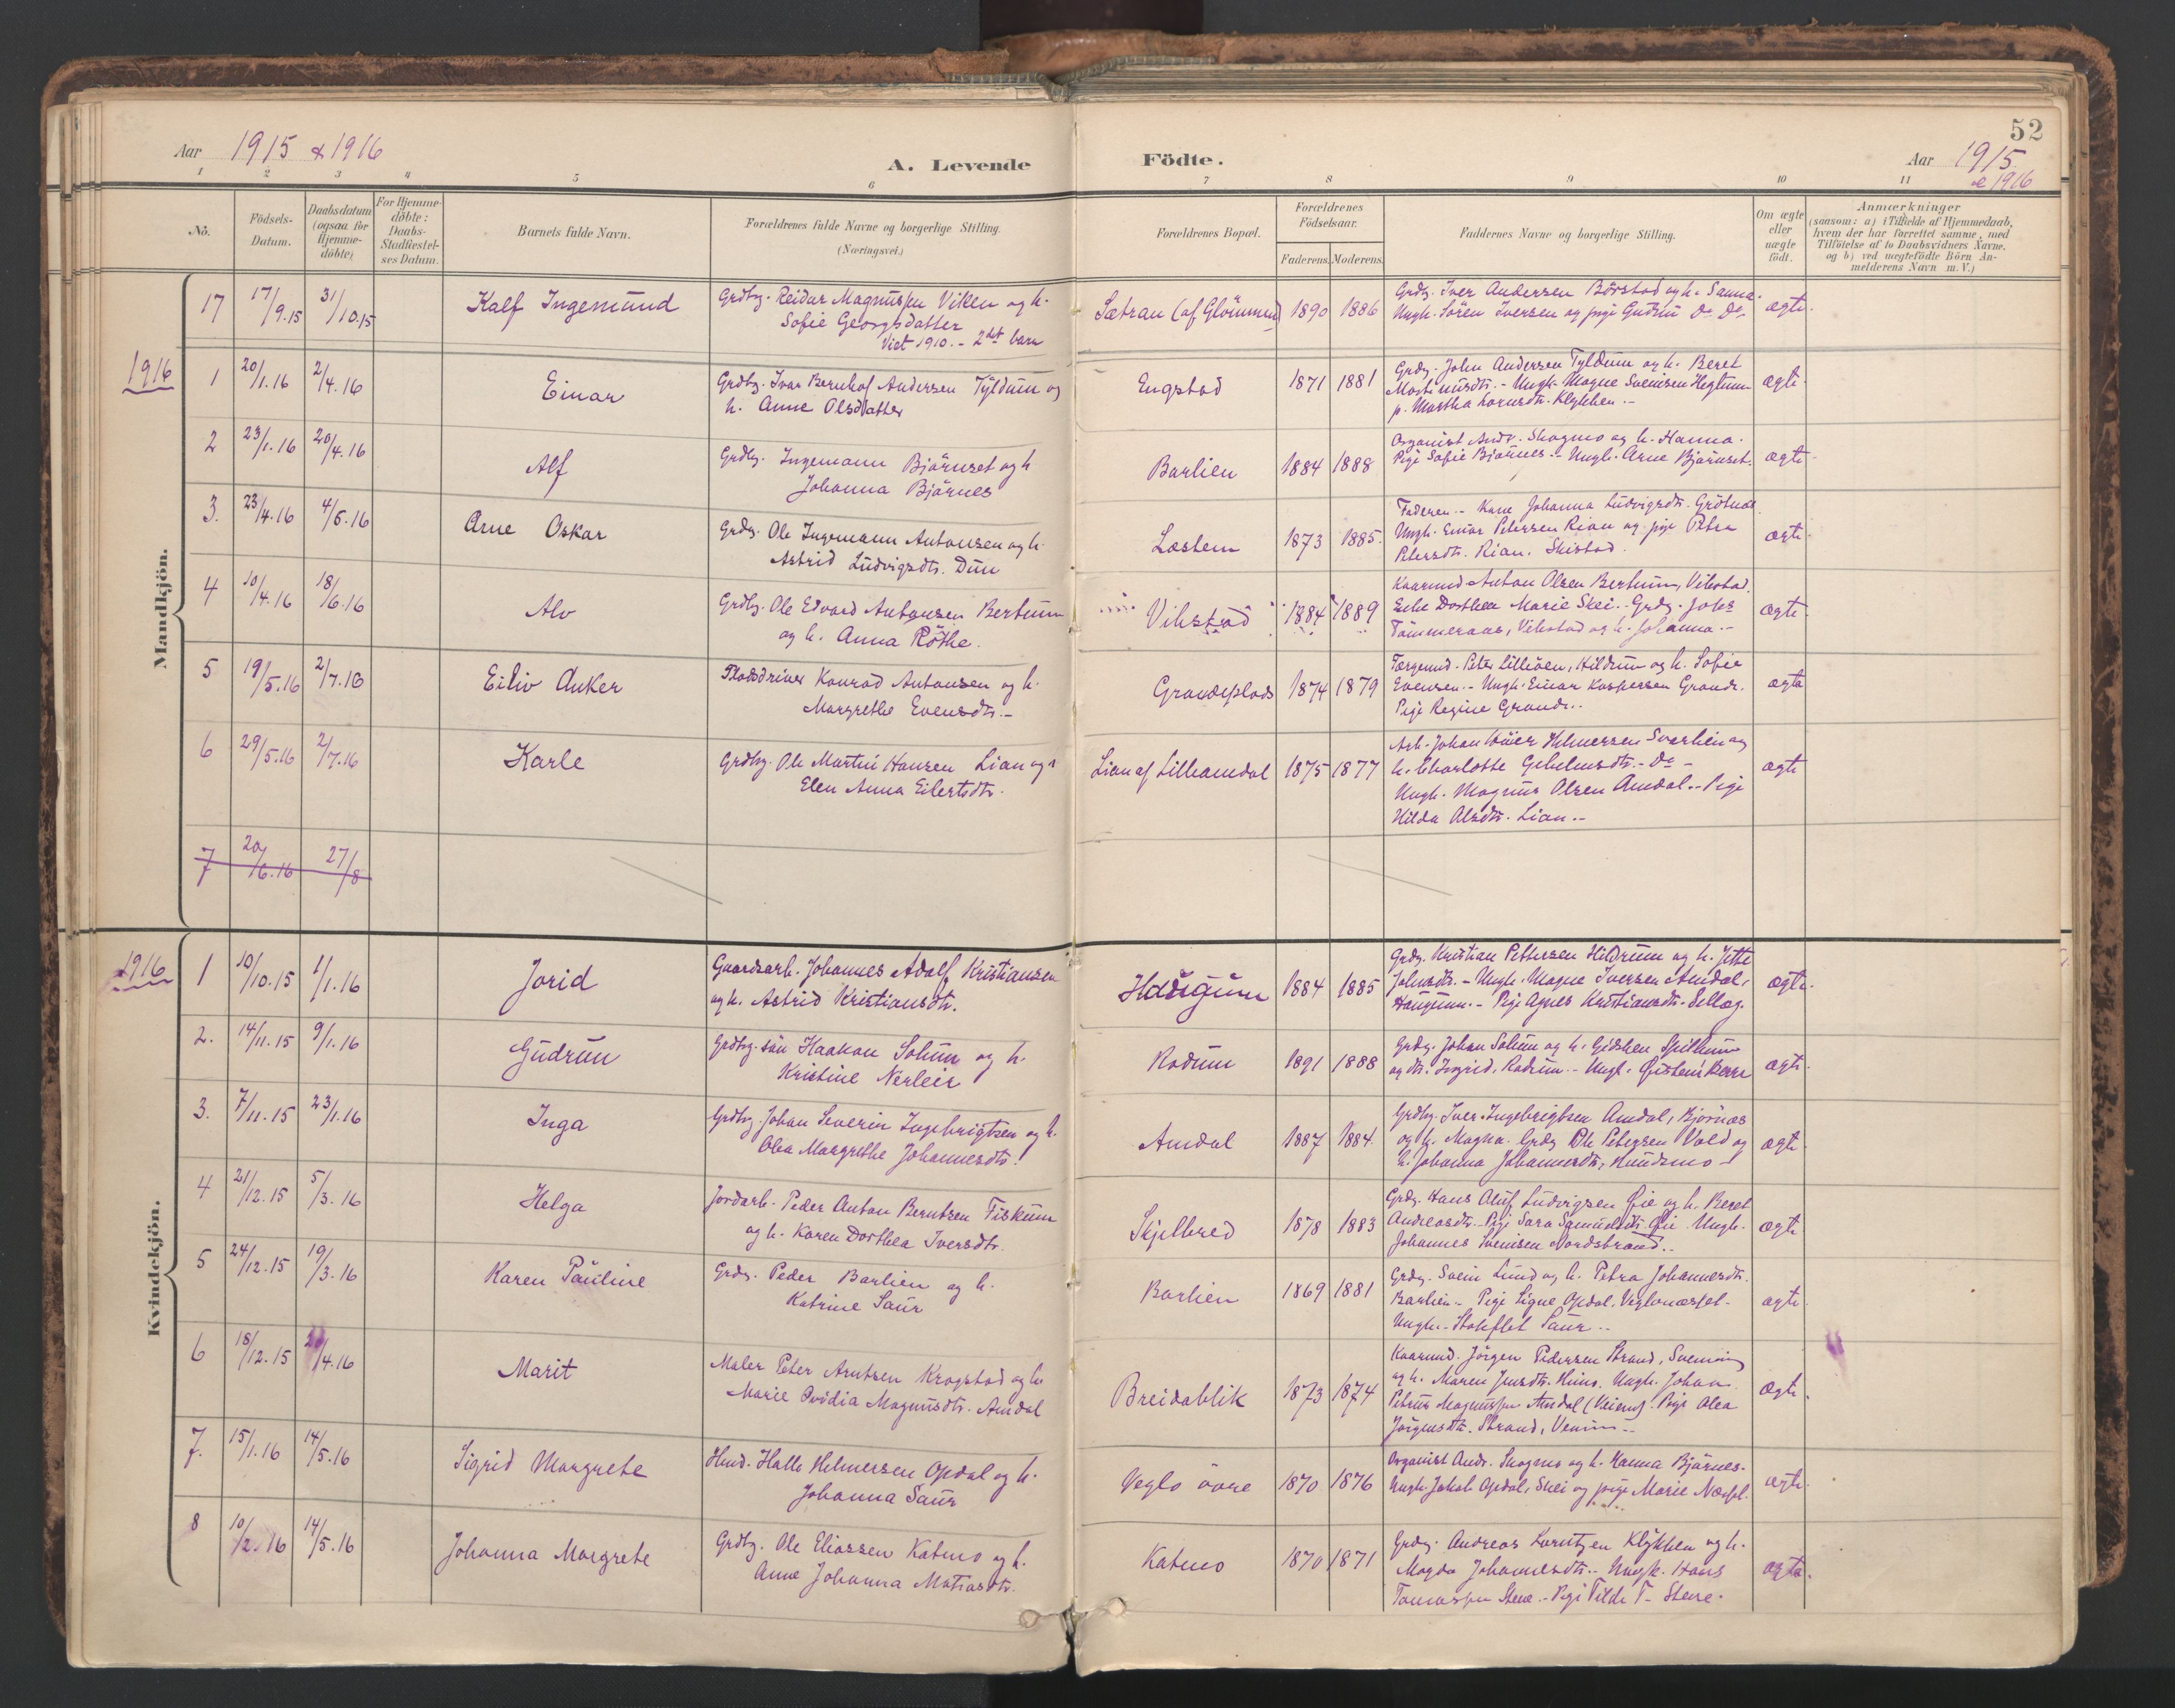 52
Aar 1915 & 1916
A. Levende Födte.
Aar 1915 & 1916
1 2 3 4 5 6 7 8 9 10 11
No.
Födsels-Datum.
Daabsdatum (ogsaa for Hjemme-döbte)
For Hjemme-döbte: Daabs-Stadfæstel-ses Datum.
Barnets fulde Navn.
Forældrenes fulde Navne og borgerlige Stilling.
(Næringsvei.)
Forældrenes Bopæl.
Forældrenes Födselsaar.
Faderens. Moderens.
Faddernes Navne og borgerlige Stilling.
Om ægte eller uægte födt.
Anmærkninger
(saasom: a) i Tilfælde af Hjemmedaab,
hvem der har forrettet samme, med
Tilföielse af to Daabsvidners Navne.
og b) ved uægtefödte Börn An-
melderens Navn m. V.)
Mandkjön.
17 17/9.15 31/10.15 Kalf Ingemund
Grdbg. Reidar Magnussen Viken og h.
Sofie Georgsdatter
Viet 1910. - 2det barn
Sætran (af Glömmen) 1890 1886
Grdbg. Iver Andersen Börstad og h. Sanna.
Ungk. Sören Iversen og pige Gudrun Do Do
ægte.
1916
1 20/1.16 2/4.16 Einar
Grdbg. Ivar Bernhof Andersen Tyldum og
h. Anne Olsdatter
Engstad 1871 1881
Grdbg. John Andersen Tyldum og h. Beret
Ungk. Magne Svensen Heglum
p. Martha Klykken.-
ægte.
2 23/1.16 20/4.16 Alf
Grdbg. Ingemann Bjørnset og h
Johanna Bjørnes
Barlien 1884 1888
Organist Andr. Skogmo og h. Hanna.
Pige Sofie Bjørnes.- Ungk. Arne Bjørnset.
ægte.
3. 23/4.16 4/5.16 Arne Oskar
Grdbg. Ole Ingemann Antonsen og h.
Astrid Ludvigsdtr. Dun
Læstem 1873 1885.
Faderen.- Kone Johanna Ludvigsdtr. Grötnæs
Ungk. Einar Petersen Rian og pige Petra
Petersdtr. Rian. Skistad.
ægte
4 10/4.16 18/6.16 Alv
Grdbg. Ole Edvard Antonsen Bertnum
og h. Anna Röthe.
Vikstad 1884 1889
Kaarmd. Anton Olsen Bertnum, Vikstad.
Enke Dorthea Marie Skei. Grdbg. Johs
Tömmeraas, Vikstad og h. Johanna.-
ægte.
5 19/5.16 2/7.16 Eiliv Anker
Pladsdriver Konrad Antonsen og h.
Margrethe Evensdtr.-
Grandeplads 1874 1879
Færgemd. Peter Lilleöen, Hildrum og h. Sofie
Evensen.- Ungk. Einar Kaspersen Grande.
Pige Regine Grande..
ægte
6 29/5.16 2/7.16 Karle
Grdbg. Ole Martin Hansen Lian og h
Elen Anna Eilertsdtr.
Lian af Lilleamdal 1875 1877
Arb. Johan Helmersen Svarlien og
h. Charlotte - Do -
Ungk. Magnus Olsen Amdal.- Pige
Hilda Olsdtr. Lian.-
ægte
7 20/6.16 27/8
Kvindekjön.
1916
1 10/10.15 1/1.16 Jorid
Gaardsarb. Johannes Adolf Kristiansen
og h. Astrid Kristiansdtr.
Haugum 1884 1885
Grdbg. Kristian Pettersen Hildrum og h. Jette
Johnsdtr.- Ungk. Magne Iversen Amdal,
Haugum.- Pige Agnes Kristiansdtr. Sellæg.
ægte.
2. 14/11.15 9/1.16 Gudrun
Grdbg. sön Haakon Solum og h.
Kristine Nerleir
Rodum 1891 1888
Grdbg. Johan Solum og h. Gidsken Spillum
og dtr. Ingrid, Rodum.- Ungk. Øistein
ægte.
3. 7/11.15 23/1.16 Inga
Grdbg. Johan Severin Ingebrigtsen og h.
Olea Margrethe Johannesdtr.
Amdal 1887 1884
Grdbg. Iver Ingebrigtsen Amdal, Bjørnæs
og h. Magna. Grdbg. Ole Petersen Vold og
h. Johanna Johannesdtr, Hundsmo-
ægte.
4 21/12.15 5/3.16 Helga
Jordarb. Peder Anton Berntsen Fiskum
og h. Karen Dorthea Iversdtr.
Skjelbred 1878 1883
Grdbg. Hans Oluf Ludvigsen Øie og h. Beret
Andreasdtr.- Pige Sara Samuelsdtr. Øie. Ungk.
Johannes Svensen Nordstrand..
ægte
5 24/12.15 19/3.16 Karen Pauline
Grdbg. Peder Barlien og h.
Katrine Saur
Barlien 1869 1881
Grdbg. Svein Lund og h. Petra Johannesdtr.
Barlien.- Pige Signe Opdal.
Ungk. Saur..
ægte.
6 18/12.15 /4.16 Marit
Maler Peter Arntsen Krogstad og h.
Marie Ovidia Magnusdtr. Amdal
Breidablik 1873 1874
Kaarmd. Jörgen Pedersen Strand,
og h. Maren Jensdtr. Ungk. Johan
Petrus Magnussen Amdal (Veiem). Pige Olea
Jörgensdtr. Strand, Vemun.-
ægte.
7. 15/1.16 14/5.16 Sigrid Margrete
Hmd. Halle Helmersen Opdal og h.
Johanna Saur
Veglo övre 1870 1876
Organist Andr. Skogmo og h. Hanna Bjørnes.
Ungk. Jakob Opdal, Skei og pige Marie Næssel.
ægte.
8 10/2.16 14/5.16 Johanna Margrete
Grdbg. Ole Eliassen Katmo og h.
Anne Johanna Matiasdtr.
Katmo 1870 1871
Grdbg. Andreas Lorntsen Klykken og h.
Magda Johannesdtr.- Ungk. Hans
Tomassen Stene.- Pige Tilde T- Stene.
ægte.